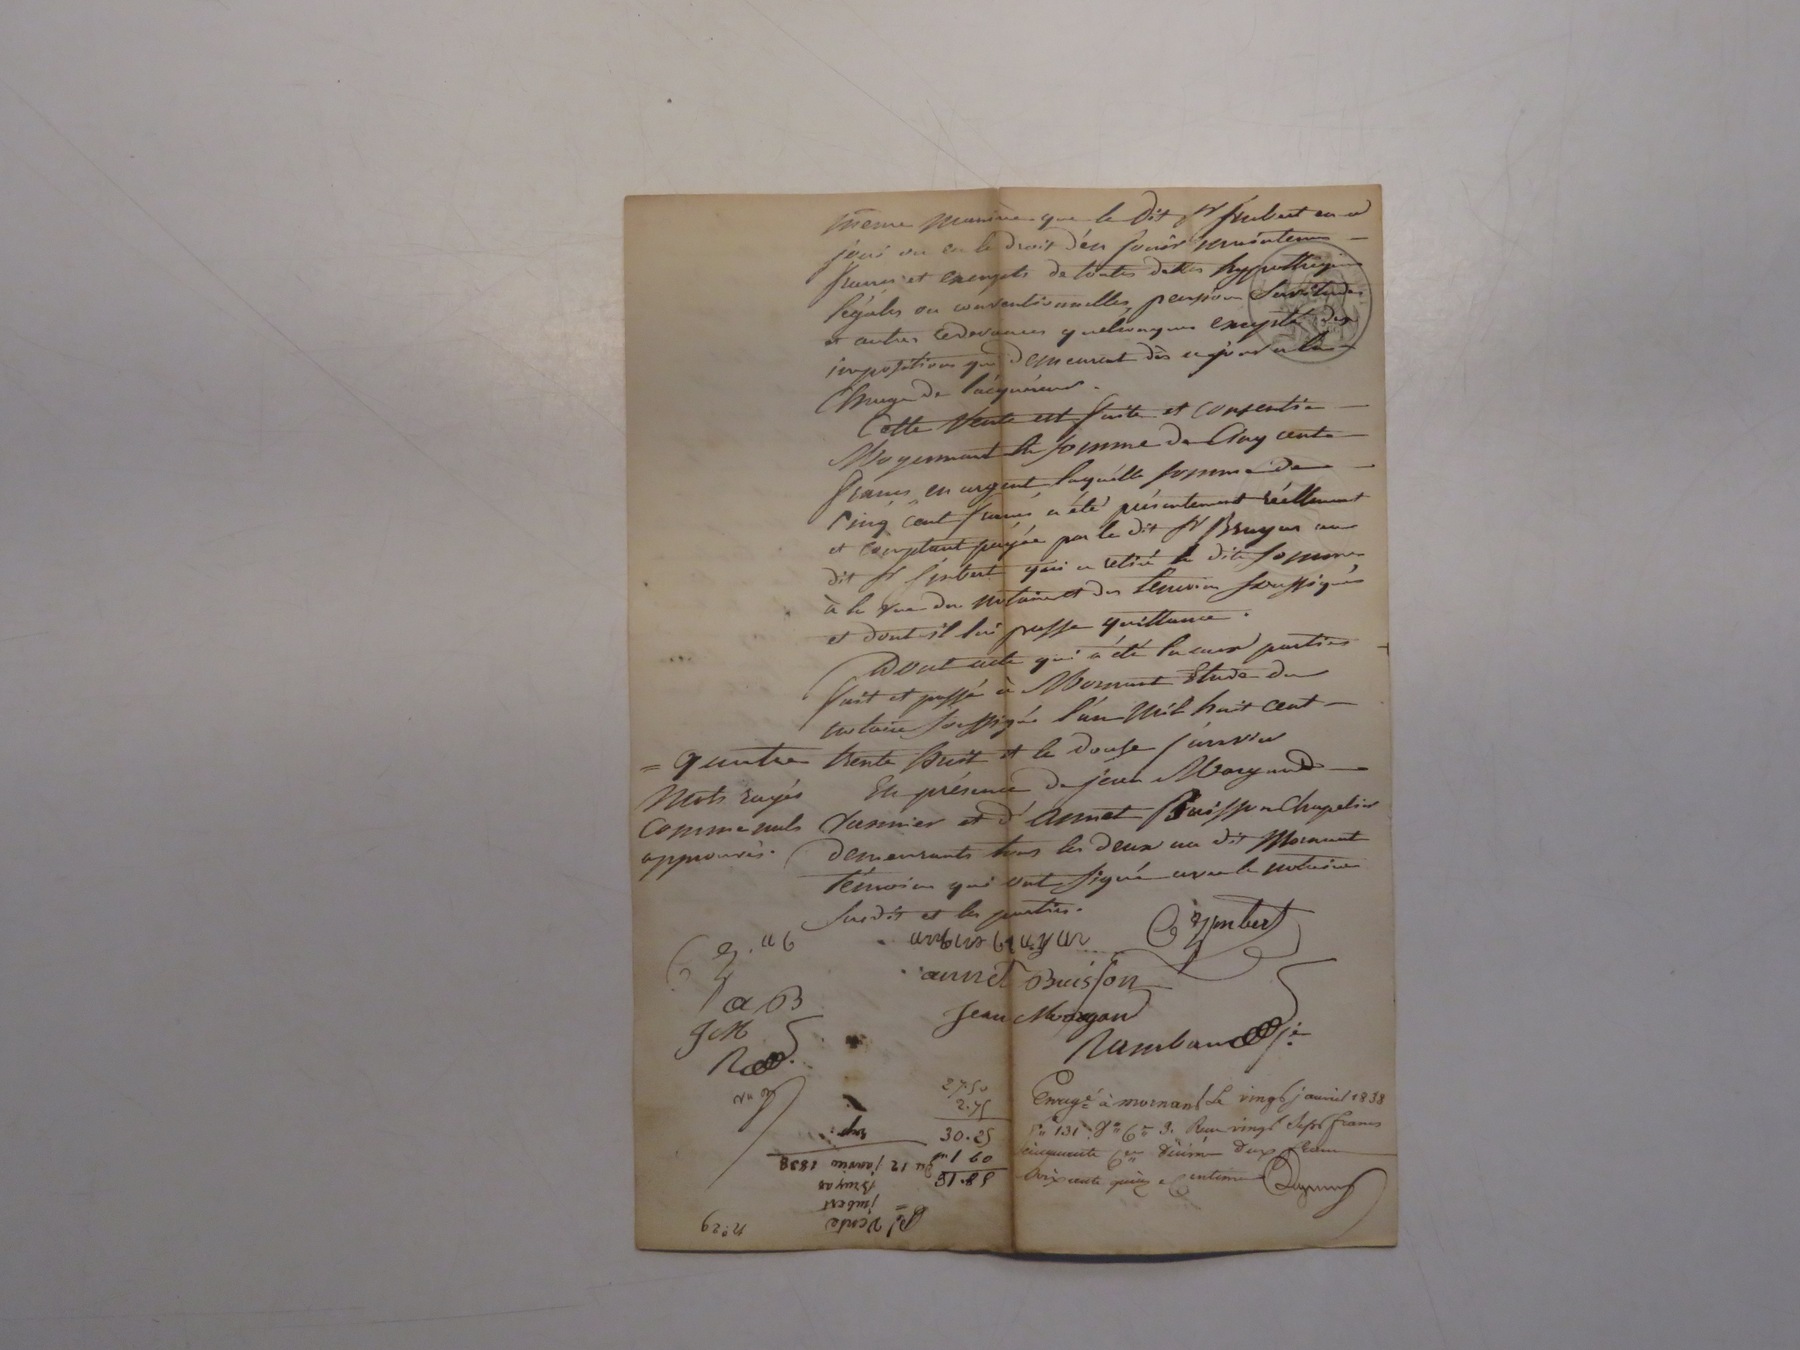 même manière que le dit Sr jmbert en a
joui ou eu le droit d'en jouir maintenus
francs et exempts de toutes dettes hypothèques
légales ou conventionnelles, pension servitudes
et autres redevances quelconques excepté des
impositions qui demeurent dès ce jour a la
Charge de l'acquéreur.
Cette Vente est faite et consentie
Moyennant la somme de Cinq cents
francs en argent laquelle somme de
Cinq cent francs a été présentement réellement
et comptant payée par le dit Sr Bruyas au
dit Sr jmbert qui a retiré la dite somme
à la vue du notaire et des témoins soussignés
et dont il lui passe quittance.
Dont acte qui a été lu aux parties
fait et passé à Mornant Etude du
notaire soussigné l'an Mil huit cent
trente huit et le douze janvier
En présence de jean Margand
et d'annet Buisson Chapelier
demeurants tous les deux au dit Mornant
témoins qui ont signé avec le notaire
susdit et les parties.
= quatre
Mots rayés
Comme nuls
approuvés.
Ymbert
annet Buisson
Jean Margand
Rambaud
a B
J M
27.50
2.75
30.25
1.60
31.85
Enregé à mornant Le vingt janvier 1838
fo 131 Vo Ce 3. Reçu vingt sept francs
cinquante Cmes Décime Deux francs
soixante quinze Centimes
Vente
jmbert
Bruyas
Du 12 janvier 1838
Exp.
no 29